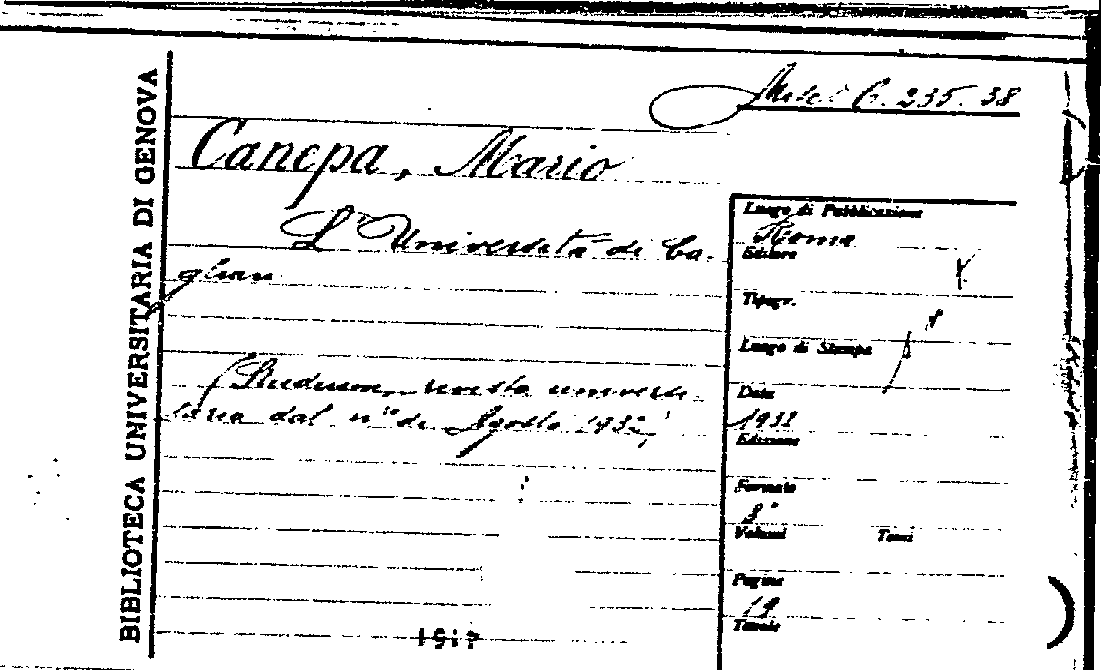 BIBLIOTECA UNIVERSITARIA DI GENOVA
Misc. C. 235. 38
Canepa, Mario
L'Università di Ca-
gliari
(Studium, rivista universi-
taria dal n.º di Agosto 1932)
Luogo di Pubblicazione
Roma
Editore
Tipogr.
Luogo di Stampa
Data
1932
Edizione
Formato
8°
Volumi Tomi
Pagine
19
Tavole